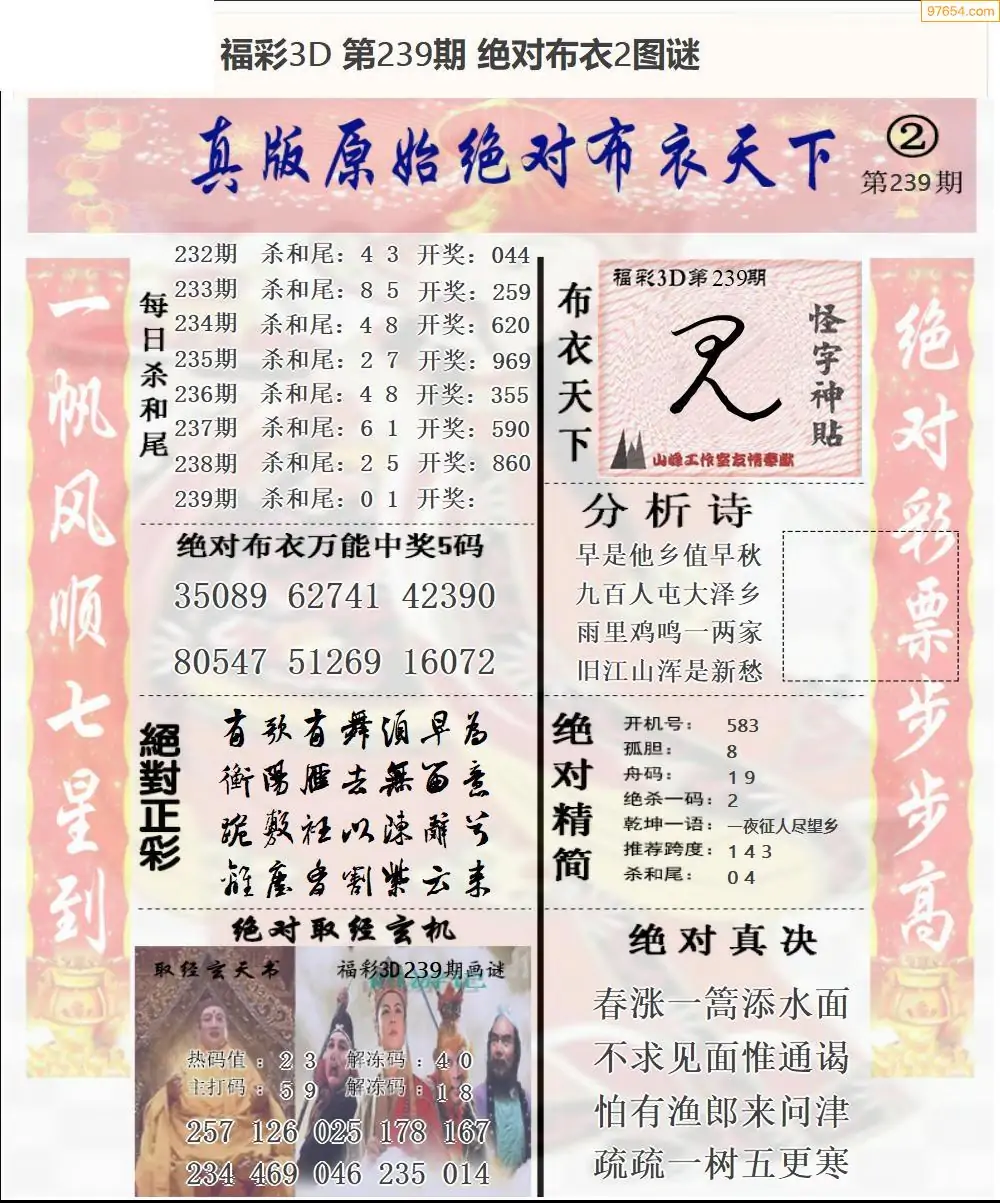 97654.com
福彩3D 第239期 绝对布衣2图谜
真版原始绝对布衣天下
②
第239期
一帆风顺七星到
每日杀和尾
232期 杀和尾：4 3 开奖：044
233期 杀和尾：8 5 开奖：259
234期 杀和尾：4 8 开奖：620
235期 杀和尾：2 7 开奖：969
236期 杀和尾：4 8 开奖：355
237期 杀和尾：6 1 开奖：590
238期 杀和尾：2 5 开奖：860
239期 杀和尾：0 1 开奖：
绝对布衣万能中奖5码
35089 62741 42390
80547 51269 16072
絕對正彩
有歌有舞须早为
衡阳雁去無留意
跪敷衽以陳辭兮
難塵香割紫云来
绝对取经玄机
取经玄天书
福彩3D239期画谜
热码值：2 3 解冻码：4 0
主打码：5 9 解冻码：1 8
257 126 025 178 167
234 469 046 235 014
布衣天下
福彩3D第239期
怪字神貼
山峰工作室友情奉献
分析诗
早是他乡值早秋
九百人屯大泽乡
雨里鸡鸣一两家
旧江山浑是新愁
绝对精简
开机号： 583
孤胆： 8
舟码： 1 9
绝杀一码：2
乾坤一语：一夜征人尽望乡
推荐跨度：1 4 3
杀和尾： 0 4
绝对真决
春涨一篙添水面
不求见面惟通谒
怕有渔郎来问津
疏疏一树五更寒
绝对彩票步步高